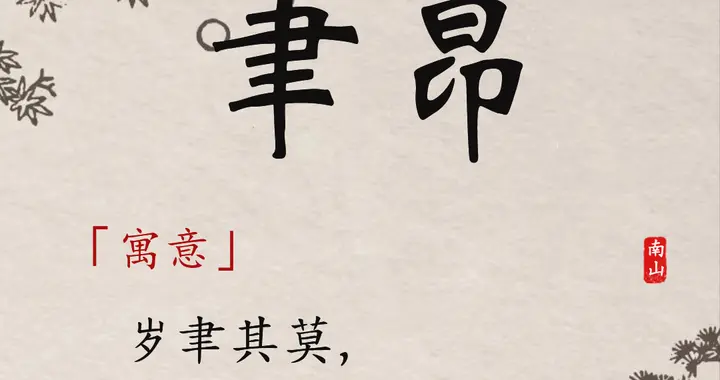 聿昂
「寓意」
南山
岁聿其莫，